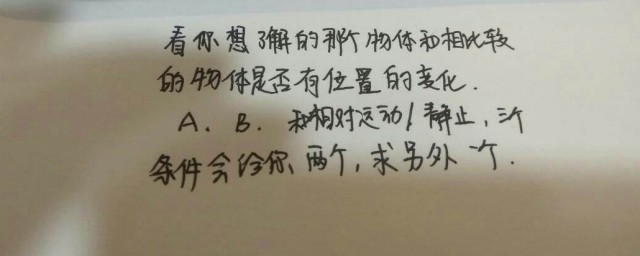 看你想了解的那个物体和相比较
的物体是否有位置的变化.
A、B、和相对运动/静止,三个
条件会给你、两个,求另外一个.